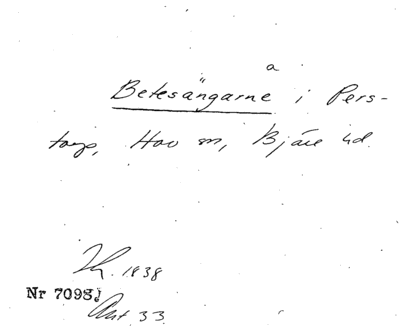 a
Betesängarne i Pers-
torp, Hov sn, Bjäre hd.
1838
Nr 7098
Akt 33